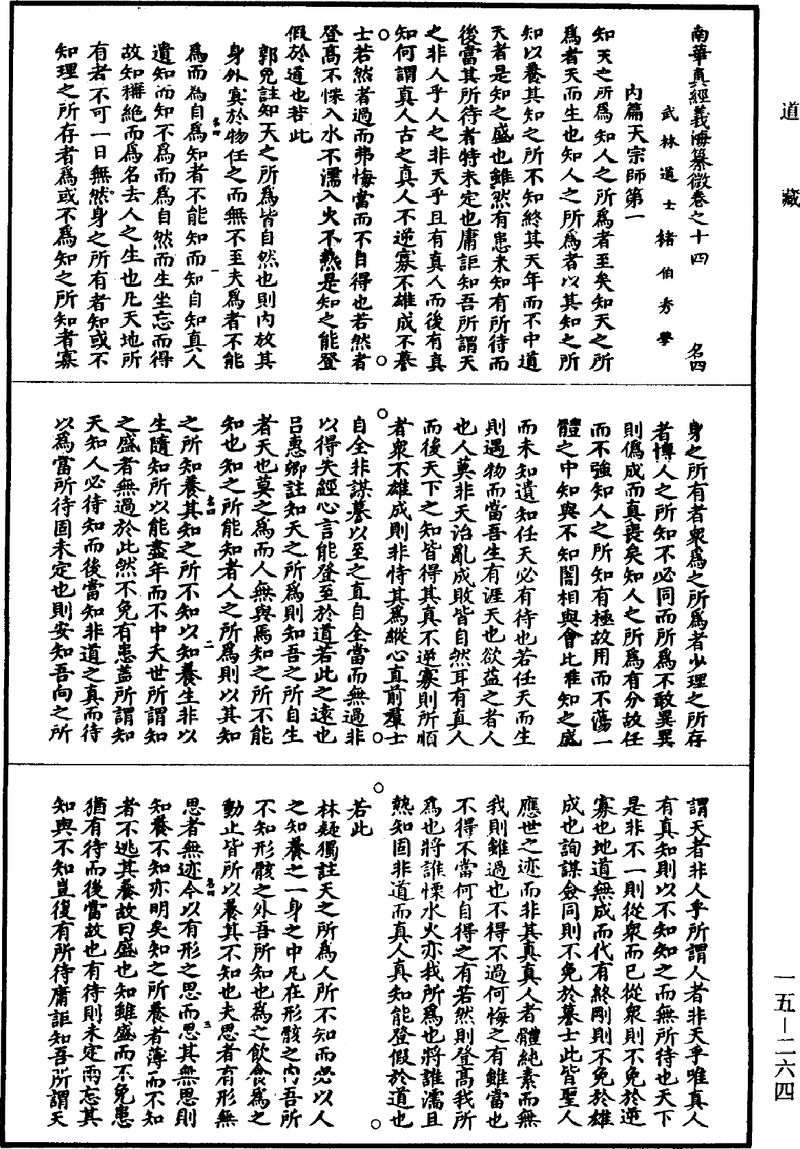 道藏
南華真經義海纂微卷之十四　名四
武林道士褚伯秀學
內篇大宗師第一
知天之所為知人之所為者至矣知天之所
為者天而生也知人之所為者以其知之所
知以養其知之所不知終其天年而不中道
夭者是知之盛也雖然有患未知有所待而
後當其所待者特未定也庸詎知吾所謂天
之非人乎人之非天乎且有真人而後有真
知何謂真人古之真人不逆寡不雄成不謩
士若然者過而弗悔當而不自得也若然者
登高不慄入水不濡入火不熱是知之能登
假於道也若此
郭象註知天之所為皆自然也則內放其
身外冥於物任之而無不至夫為者不能
為而為自為知者不能知而知自知真人
遺知而知不為而為自然而生坐忘而得
故知稱絕而為名去人之生也凡天地所
有者不可一日無然身之所有者知或不
知理之所存者為或不為知之所知者寡
身之所有者眾為之所為者少理之所存
者博人之所知不必同而所為不敢異異
則偽成而真喪矣知人之所為有分故任
而不強知人之所知有極故用而不蕩一
體之中知與不知闇相與會比唯知之盛
而未知遺知任天必有待也若任天而生
則遇物而當吾生有涯天也欲益之者人
也人莫非天治亂成敗皆自然耳有真人
而後天下之知皆得其真不逆寡則所順
者眾不雄成則非恃其為縱心直前群士
自全非謀謩以至之直自全當而無過非
以得失經心言能登至於道若此之遠也
呂惠卿註知天之所為則知吾之所自生
者天也莫之為而人無與焉知之所不能
知也知之所能知者人之所為則以其知
之所知養其知之所不知以知養生非以
生隨知所以能盡年而不中夭世所謂知
之盛者無過於此然不免有患葢所謂知
天知人必待知而後當知非道之真而待
以為當所待固未定也則安知吾向之所
謂天者非人乎所謂人者非天乎唯真人
有真知則以不知知之而無所待也天下
是非不一則從眾而已從眾則不免於逆
寡也地道無成而代有終剛則不免於雄
成也詢謀僉同則不免於謩士此皆聖人
應世之迹而非其真真人者體純素而無
我則雖過也不得不過何悔之有雖當也
不得不當何自得之有若然則登高我所
為也將誰慄水火亦我所為也將誰濡且
熱知固非道而真人真知能登假於道也
若此
林疑獨註天之所為人所不知而必以人
之知養之一身之中凡在形骸之內吾所
不知形骸之外吾所知也為之飲食為之
動止皆所以養其不知也夫思者有形無
思者無迹今以有形之思而思其無思則
知養不知亦明矣知之所養者薄而不知
者不逃其養故曰盛也知雖盛而不免患
猶有待而後當故也有待則未定兩忘其
知與不知豈復有所待庸詎知吾所謂天
一五—二六四